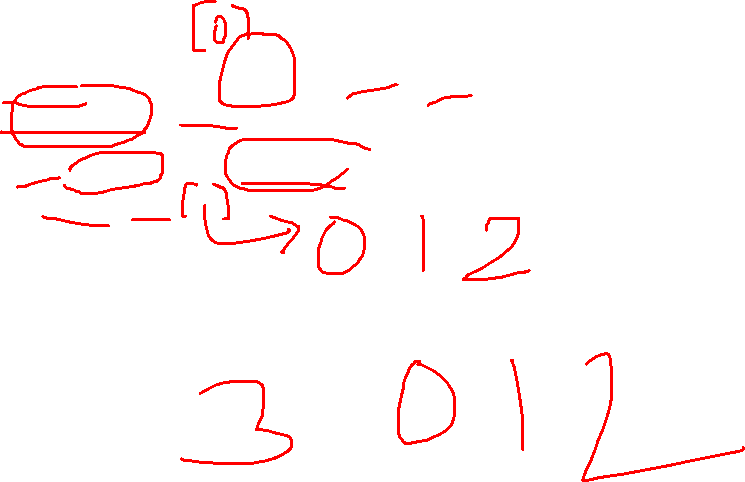 [0]
[ ]
0 1 2
3 0 1 2